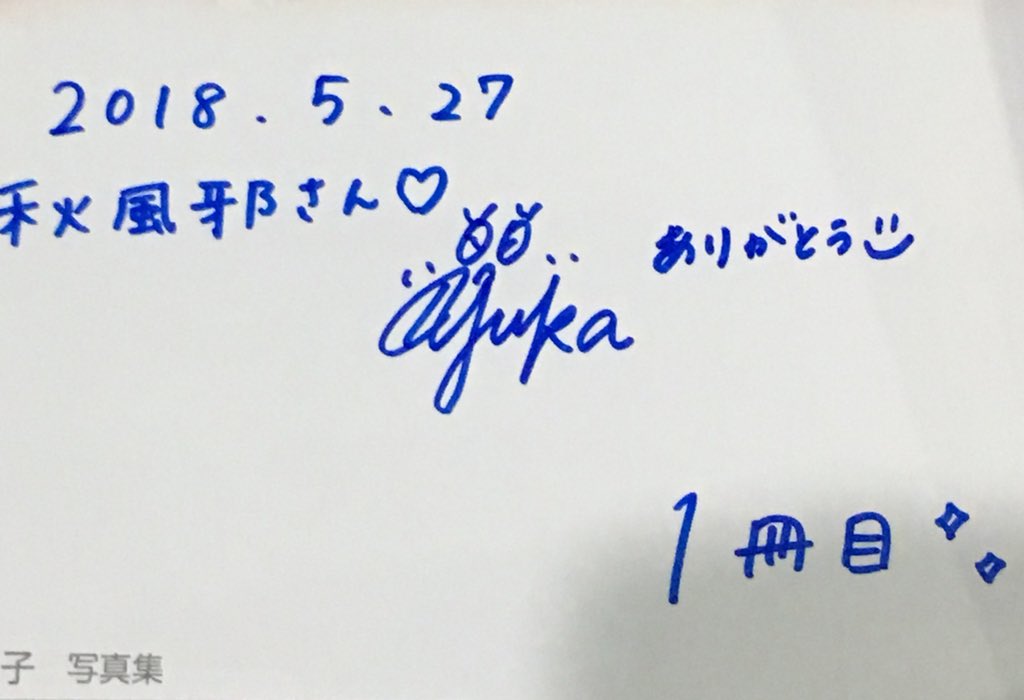 2018.5.27
秋風邪さん♡
ありがとう
Ayuka
1冊目
子 写真集